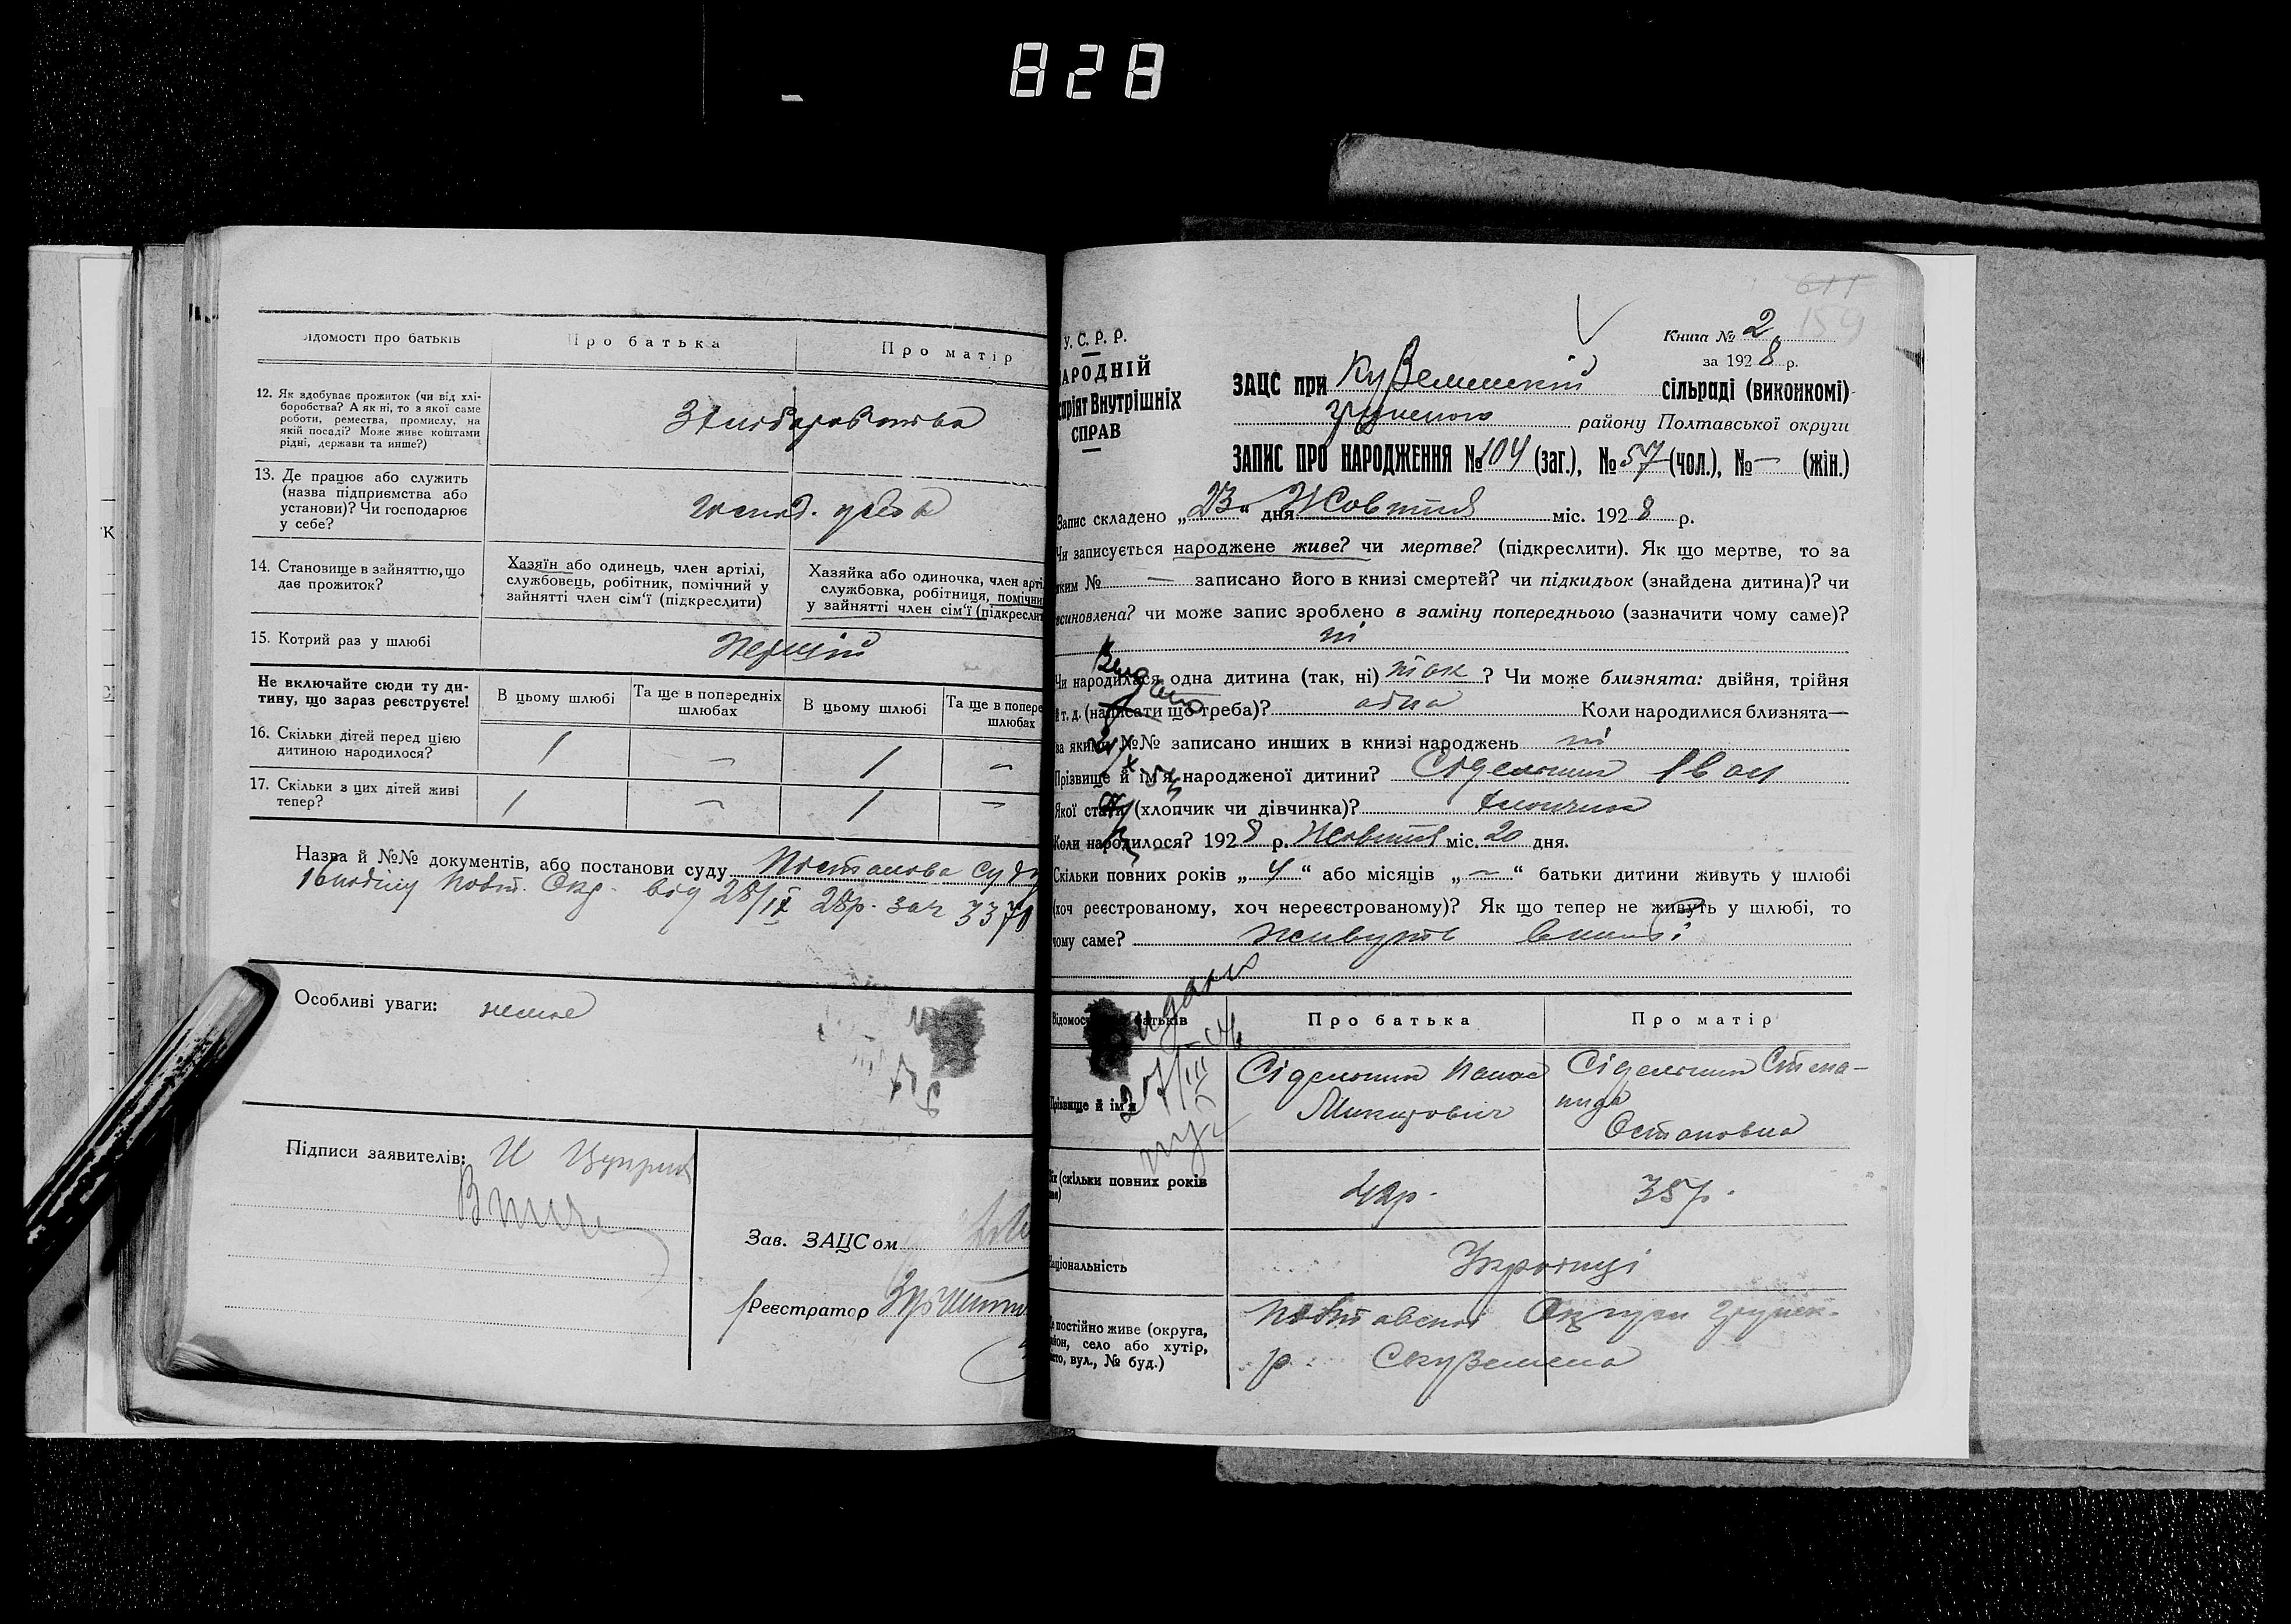 828
Відомості про батьків
Про батька
Про матір
12. Як здобуває прожиток (чи від хлі-
боробства? А як ні, то з якої саме
роботи, ремества, промислу, на
якій посаді? Може живе коштами
рідні, держави та инше?)
З хліборобства
13. Де працює або служить
(назва підприємства або
установи)? Чи господарює
у себе?
14. Становище в зайняттю, що
дає прожиток?
Хазяїн або одинець, член артілі,
службовець, робітник, помічний у
зайнятті член сім'ї (підкреслити)
Хазяйка або одиночка, член арті
службовка, робітниця, помічни
у зайнятті член сім'ї (підкреслит
15. Котрий раз у шлюбі
Перший
Не включайте сюди ту ди-
тину, що зараз реєструєте!
В цьому шлюбі
Та ще в попередніх
шлюбах
В цьому шлюбі
Та ще в попере
шлюбах
16. Скільки дітей перед цією
дитиною народилося?
1 — 1 —
17. Скільки з цих дітей живі
тепер?
1 — 1 —
Назва й №№ документів, або постанови суду Постанова суду
Окр. від 28/IX 28р. за № 3370
Особливі уваги: немає
Підписи заявителів:
Зав. ЗАЦСом
Реєстратор
У. С. Р. Р.
АРОДНІЙ
саріят Внутрішніх
СПРАВ
Книга № 2
154
за 1928 р.
ЗАЦС при Куземенській сільраді (виконкомі)
Грунського району Полтавської округи
ЗАПИС ПРО НАРОДЖЕННЯ № 104 (заг.), № 57 (чол.), № — (жін.)
Запис складено „23" дня Жовтня міс. 1928 р.
Чи записується народжене живе? чи мертве? (підкреслити). Як що мертве, то за
яким № — записано його в книзі смертей? чи підкидьок (знайдена дитина)? чи
всиновлена? чи може запис зроблено в заміну попереднього (зазначити чому саме)?
ні
Чи народилася одна дитина (так, ні) так ? Чи може близнята: двійня, трійня
і т. д. (написати що треба)? одна Коли народилися близнята—
за якими №№ записано инших в книзі народжень ні
Прізвище й ім'я народженої дитини? Сідельник Іван
Якої стати (хлопчик чи дівчинка)? хлопчик
Коли народилося? 1928 р. Жовтня міс. 20 дня.
Скільки повних років „4" або місяців „—" батьки дитини живуть у шлюбі
(хоч реєстрованому, хоч нереєстрованому)? Як що тепер не живуть у шлюбі, то
чому саме? живуть в шлюбі
Відомос батьків
Про батька
Про матір
Прізвище й ім'я
Сідельник Панас
Микитович
Сідельник Степа-
нида
Остаповна
Вік (скільки повних років
42р.
35р.
Національність
Українці
Де постійно живе (округа,
район, село або хутір,
місто, вул., № буд.)
Полтавської Округи Грунск-
р. С Куземена